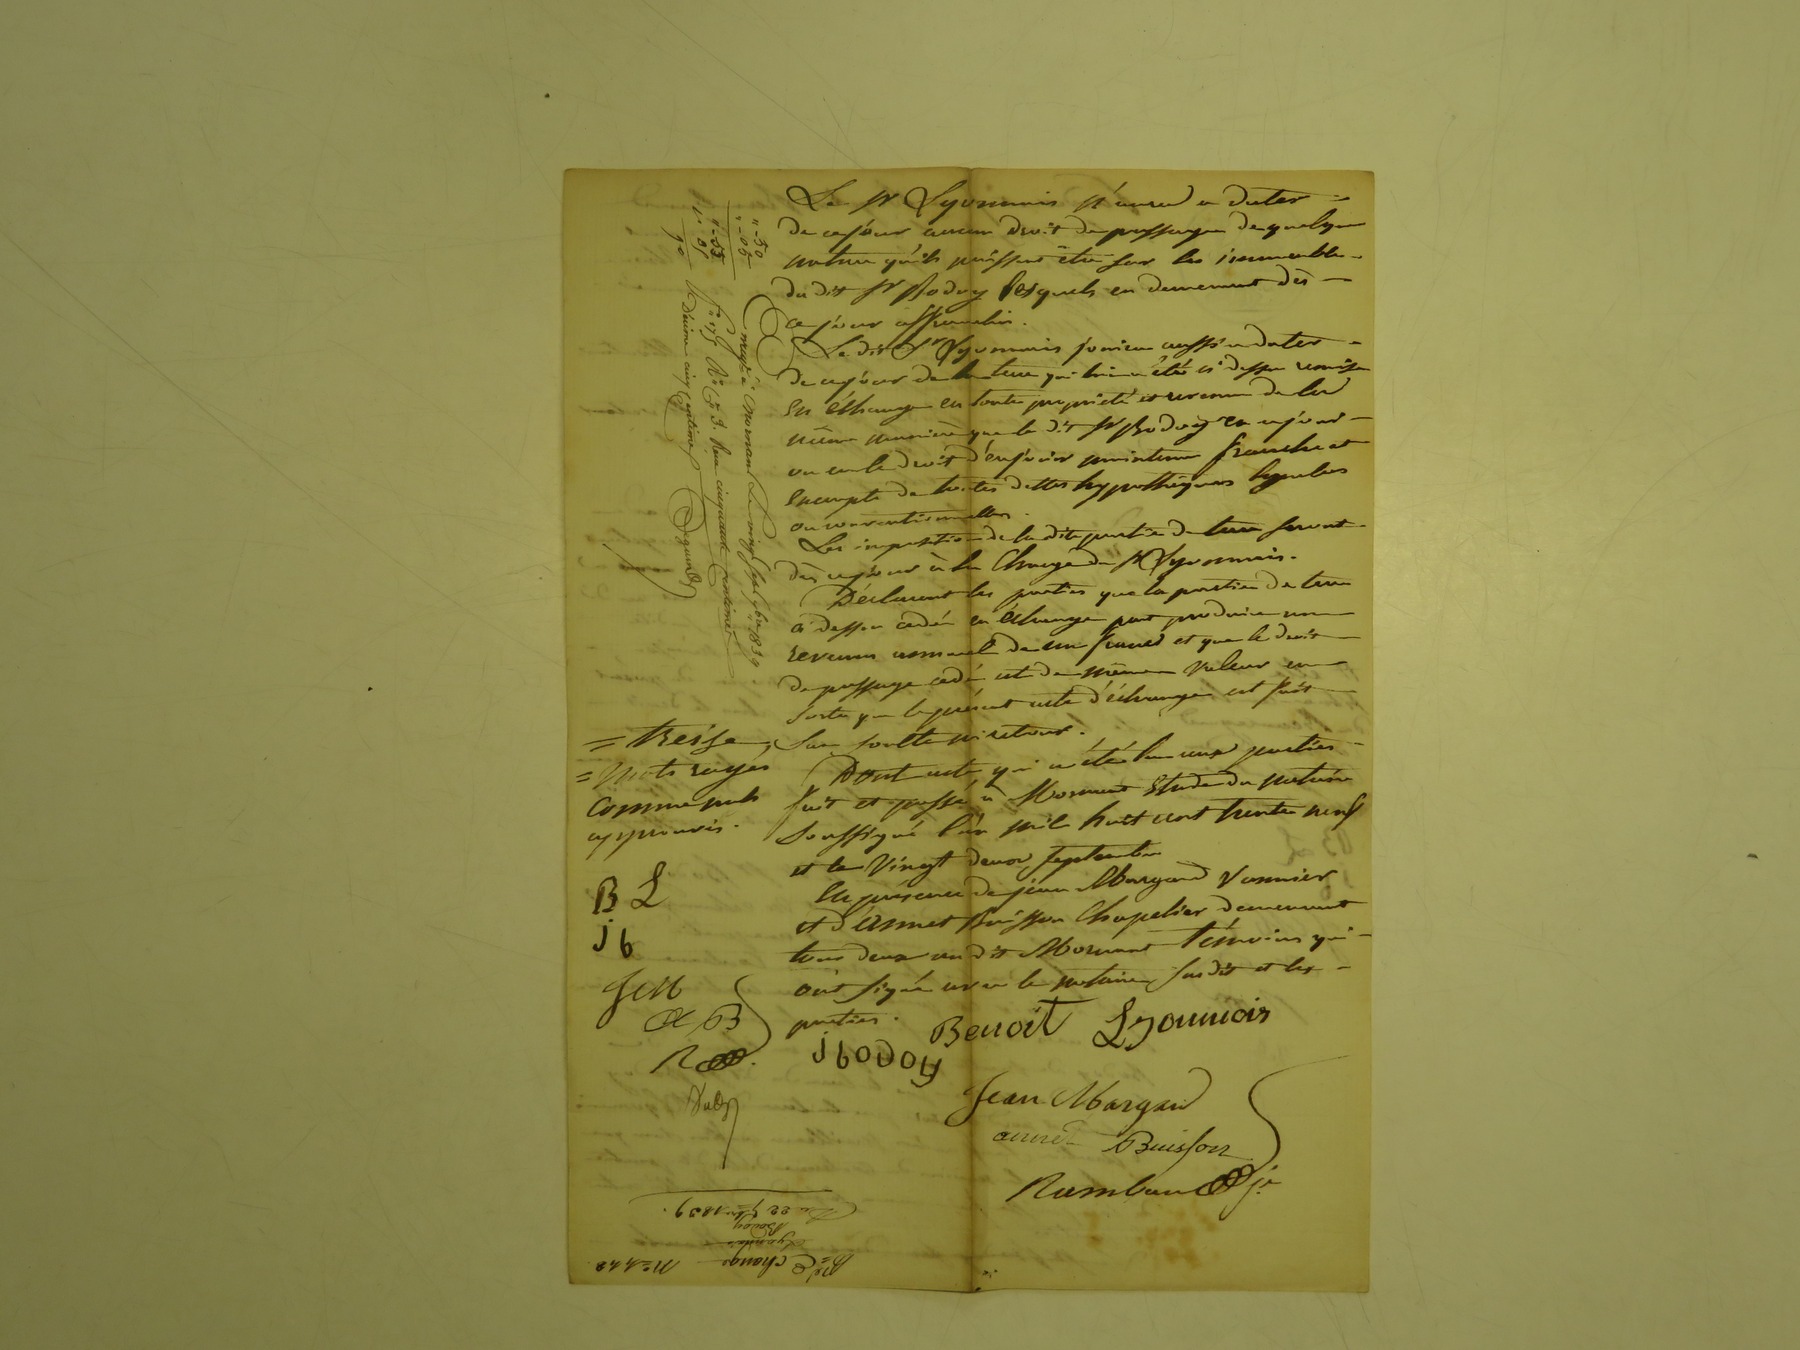 Le Sr Lyonnais n'aura a dater =
de ce jour aucun droit de passage de quelque
nature qu'ils puissent être sur les immeubles
du dit Sr Bodoy lesquels en demeurent dès —
ce jour affranchis.
Le dit Sr Lyonnais jouira aussi a dater =
de ce jour de la terre qui lui a été ci dessus remise
en échange en toute propriété et revenu de la
même manière que le dit Sr Bodoy en a joui —
ou eu le droit d'en jouir maintenue franche et
exempte de toutes dettes hypothèques légales
ou conventionnelles.
Les impositions de la dite partie de terre seront
dès ce jour à la charge du Sr Lyonnais.
Déclarent les parties que la portion de terre
ci dessus cédée en échange peut produire un
revenu annuel de un franc et que le droit
de passage cédé est de même valeur en
sorte que le présent acte d'échange est fait
sans soulte ni retour.
Dont acte qui a été lu aux parties
fait et passé à Mornant Etude du notaire
soussigné l'an mil huit cent trente neuf
et le vingt deux septembre
En présence de jean Margand vannier
et d'annet Buisson Chapelier demeurant
tous deux au dit Mornant témoins qui —
ont signé avec le notaire susdit et les —
parties.
Benoit Lyonnois
jbodoy
Jean Margand
annet Buisson
Rambau je
= treize
= mots rayés
comme nuls
approuvés.
B L
j b
JM
a B
R
Enregistré à Mornant le vingt sept 7bre 1839
f° 175 R° C 3. Reçu cinquante centimes
décime cinq centimes
"-50
"-05
"-55
N° 142
Echange
Lyonnais
Bodoy
Du 22 7bre 1839.